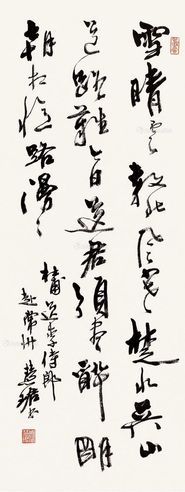 雪晴云散北风寒楚水吴山
道路難今日送君须尽醉明
朝相忆路漫々
送李侍郎
赴常州 慧珺书